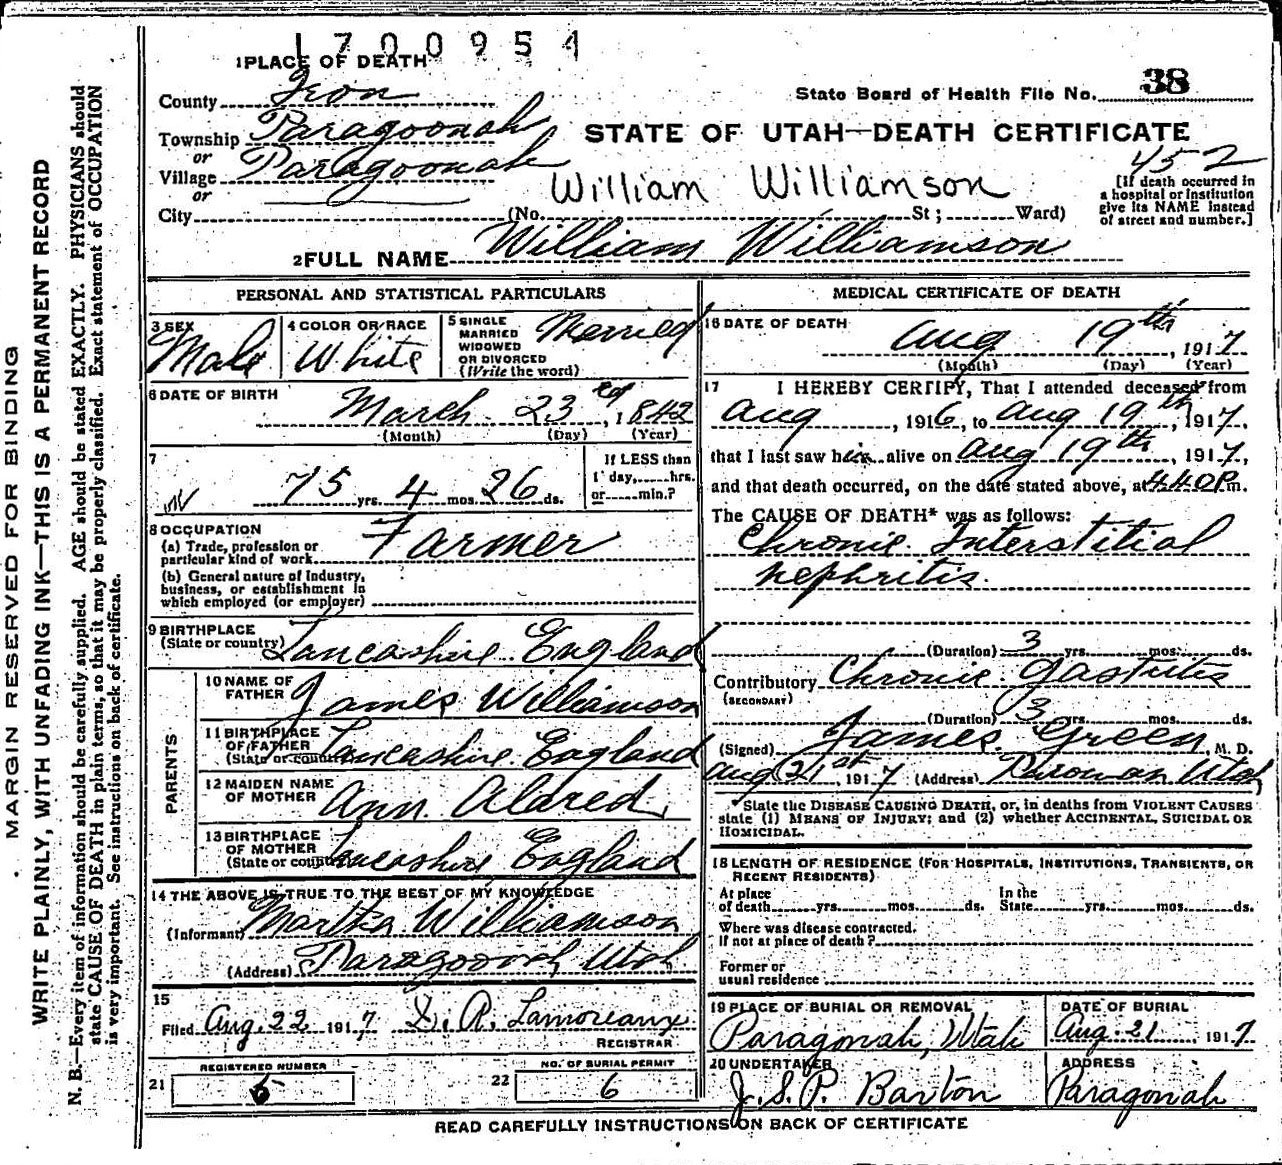 1700954
1 PLACE OF DEATH
County Iron
Township Paragoonah
or
Village Paragoonah
or
City (No. St; Ward)
State Board of Health File No. 38
STATE OF UTAH—DEATH CERTIFICATE
452
William Williamson
[If death occurred in
a hospital or institution
give its NAME instead
of street and number.]
2 FULL NAME William Williamson
PERSONAL AND STATISTICAL PARTICULARS
3 SEX Male
4 COLOR OR RACE White
5 SINGLE
MARRIED
WIDOWED
OR DIVORCED
(Write the word)
Married
6 DATE OF BIRTH
March 23rd, 1842
(Month) (Day) (Year)
7
75 yrs. 4 mos. 26 ds.
If LESS than
1 day, hrs.
or min.?
8 OCCUPATION
(a) Trade, profession or
particular kind of work Farmer
(b) General nature of Industry,
business, or establishment in
which employed (or employer)
9 BIRTHPLACE
(State or country) Lancashire England
PARENTS
10 NAME OF
FATHER James Williamson
11 BIRTHPLACE
OF FATHER
(State or country) Lancashire England
12 MAIDEN NAME
OF MOTHER Ann Aldred
13 BIRTHPLACE
OF MOTHER
(State or country) Lancashire England
14 THE ABOVE IS TRUE TO THE BEST OF MY KNOWLEDGE
(Informant) Martha Williamson
(Address) Paragoonah Utah
15
Filed Aug. 22 1917 D. A. Lamoreaux
REGISTRAR
REGISTERED NUMBER
21 5
NO. OF BURIAL PERMIT
22 6
MEDICAL CERTIFICATE OF DEATH
16 DATE OF DEATH
Aug 19th, 1917
(Month) (Day) (Year)
17 I HEREBY CERTIFY, That I attended deceased from
Aug, 1916, to Aug 19th, 1917,
that I last saw him alive on Aug 19th, 1917,
and that death occurred, on the date stated above, at 4.40 P.m.
The CAUSE OF DEATH* was as follows:
Chronic Interstitial
nephritis.
(Duration) 3 yrs. mos. ds.
Contributory Chronic Gastritis
(SECONDARY)
(Duration) 3 yrs. mos. ds.
(Signed) James Green, M. D.
Aug 21st, 1917 (Address) Parowan, Utah
State the DISEASE CAUSING DEATH, or, in deaths from VIOLENT CAUSES
state (1) MEANS OF INJURY; and (2) whether ACCIDENTAL, SUICIDAL OR
HOMICIDAL.
18 LENGTH OF RESIDENCE (FOR HOSPITALS, INSTITUTIONS, TRANSIENTS, OR
RECENT RESIDENTS)
At place
of death yrs. mos. ds.
In the
State yrs. mos. ds.
Where was disease contracted.
If not at place of death?
Former or
usual residence
19 PLACE OF BURIAL OR REMOVAL
Paragonah, Utah
DATE OF BURIAL
Aug. 21, 1917
20 UNDERTAKER
J. S. P. Barton
ADDRESS
Paragonah
READ CAREFULLY INSTRUCTIONS ON BACK OF CERTIFICATE
MARGIN RESERVED FOR BINDING
WRITE PLAINLY, WITH UNFADING INK—THIS IS A PERMANENT RECORD
N. B.—Every item of information should be carefully supplied. AGE should be stated EXACTLY. PHYSICIANS should
state CAUSE OF DEATH in plain terms, so that it may be properly classified. Exact statement of OCCUPATION
is very important. See instructions on back of certificate.